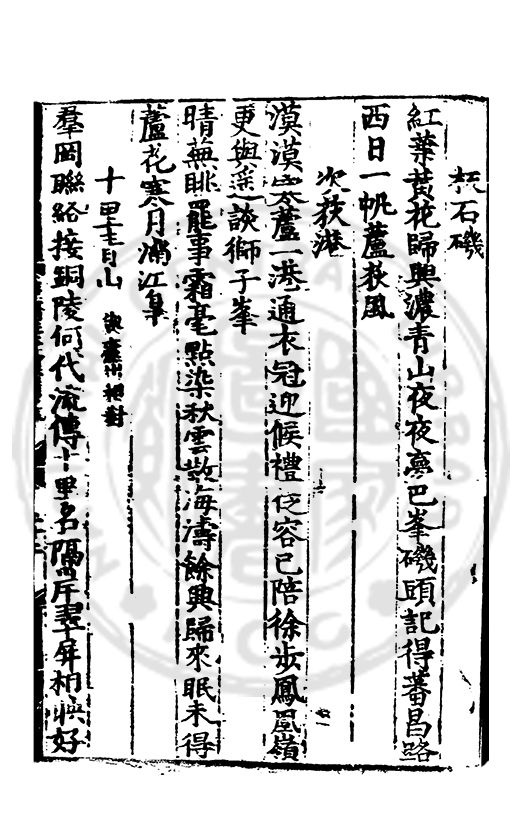 石磯
紅葉黃花歸興濃青山夜夜夢巴峯磯頭記得蕃昌路
西日一帆蘆荻風
次荻港
漠漠蘆一港通衣冠迎候禮容已陪徐步鳳凰嶺
更與遥談獅子峯
晴蕪眺罷事霜毫點染秋雲散海濤餘興歸來眠未得
蘆花寒月滿江皐
十里青山 與廬州相對
羣岡聯絡接銅陵何代流傳十里名隔岸翠屏相映好